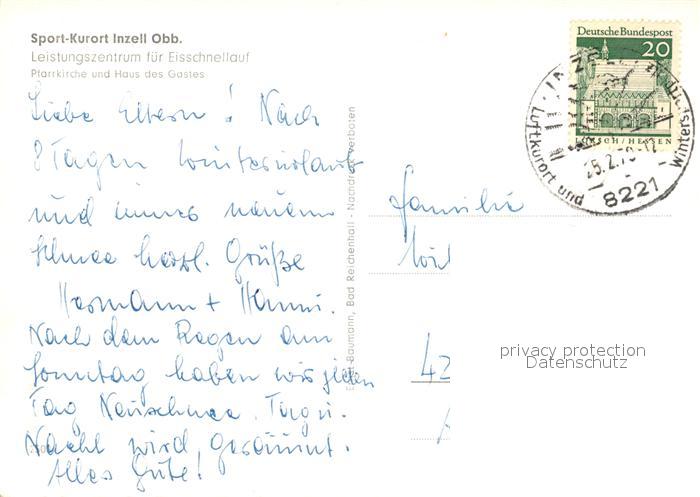 Sport-Kurort Inzell Obb.
Leistungszentrum für Eisschnellauf
Pfarrkirche und Haus des Gastes
Liebe Eltern! Nach
8 Tagen Winterurlaub
und immer neuem
Schnee herzl. Grüße
Hermann + Hanni.
Nach dem Regen am
Sonntag haben wir jeden
Tag Neuschnee. Tag u.
Nacht wird geräumt.
Alles Gute!
Baumann, Bad Reichenhall - Nachdruck verboten
Deutsche Bundespost
20
LORSCH / HESSEN
INZELL
Luftkurort und Wintersport
25.2.70-12
8221
Familie
42
privacy protection
Datenschutz